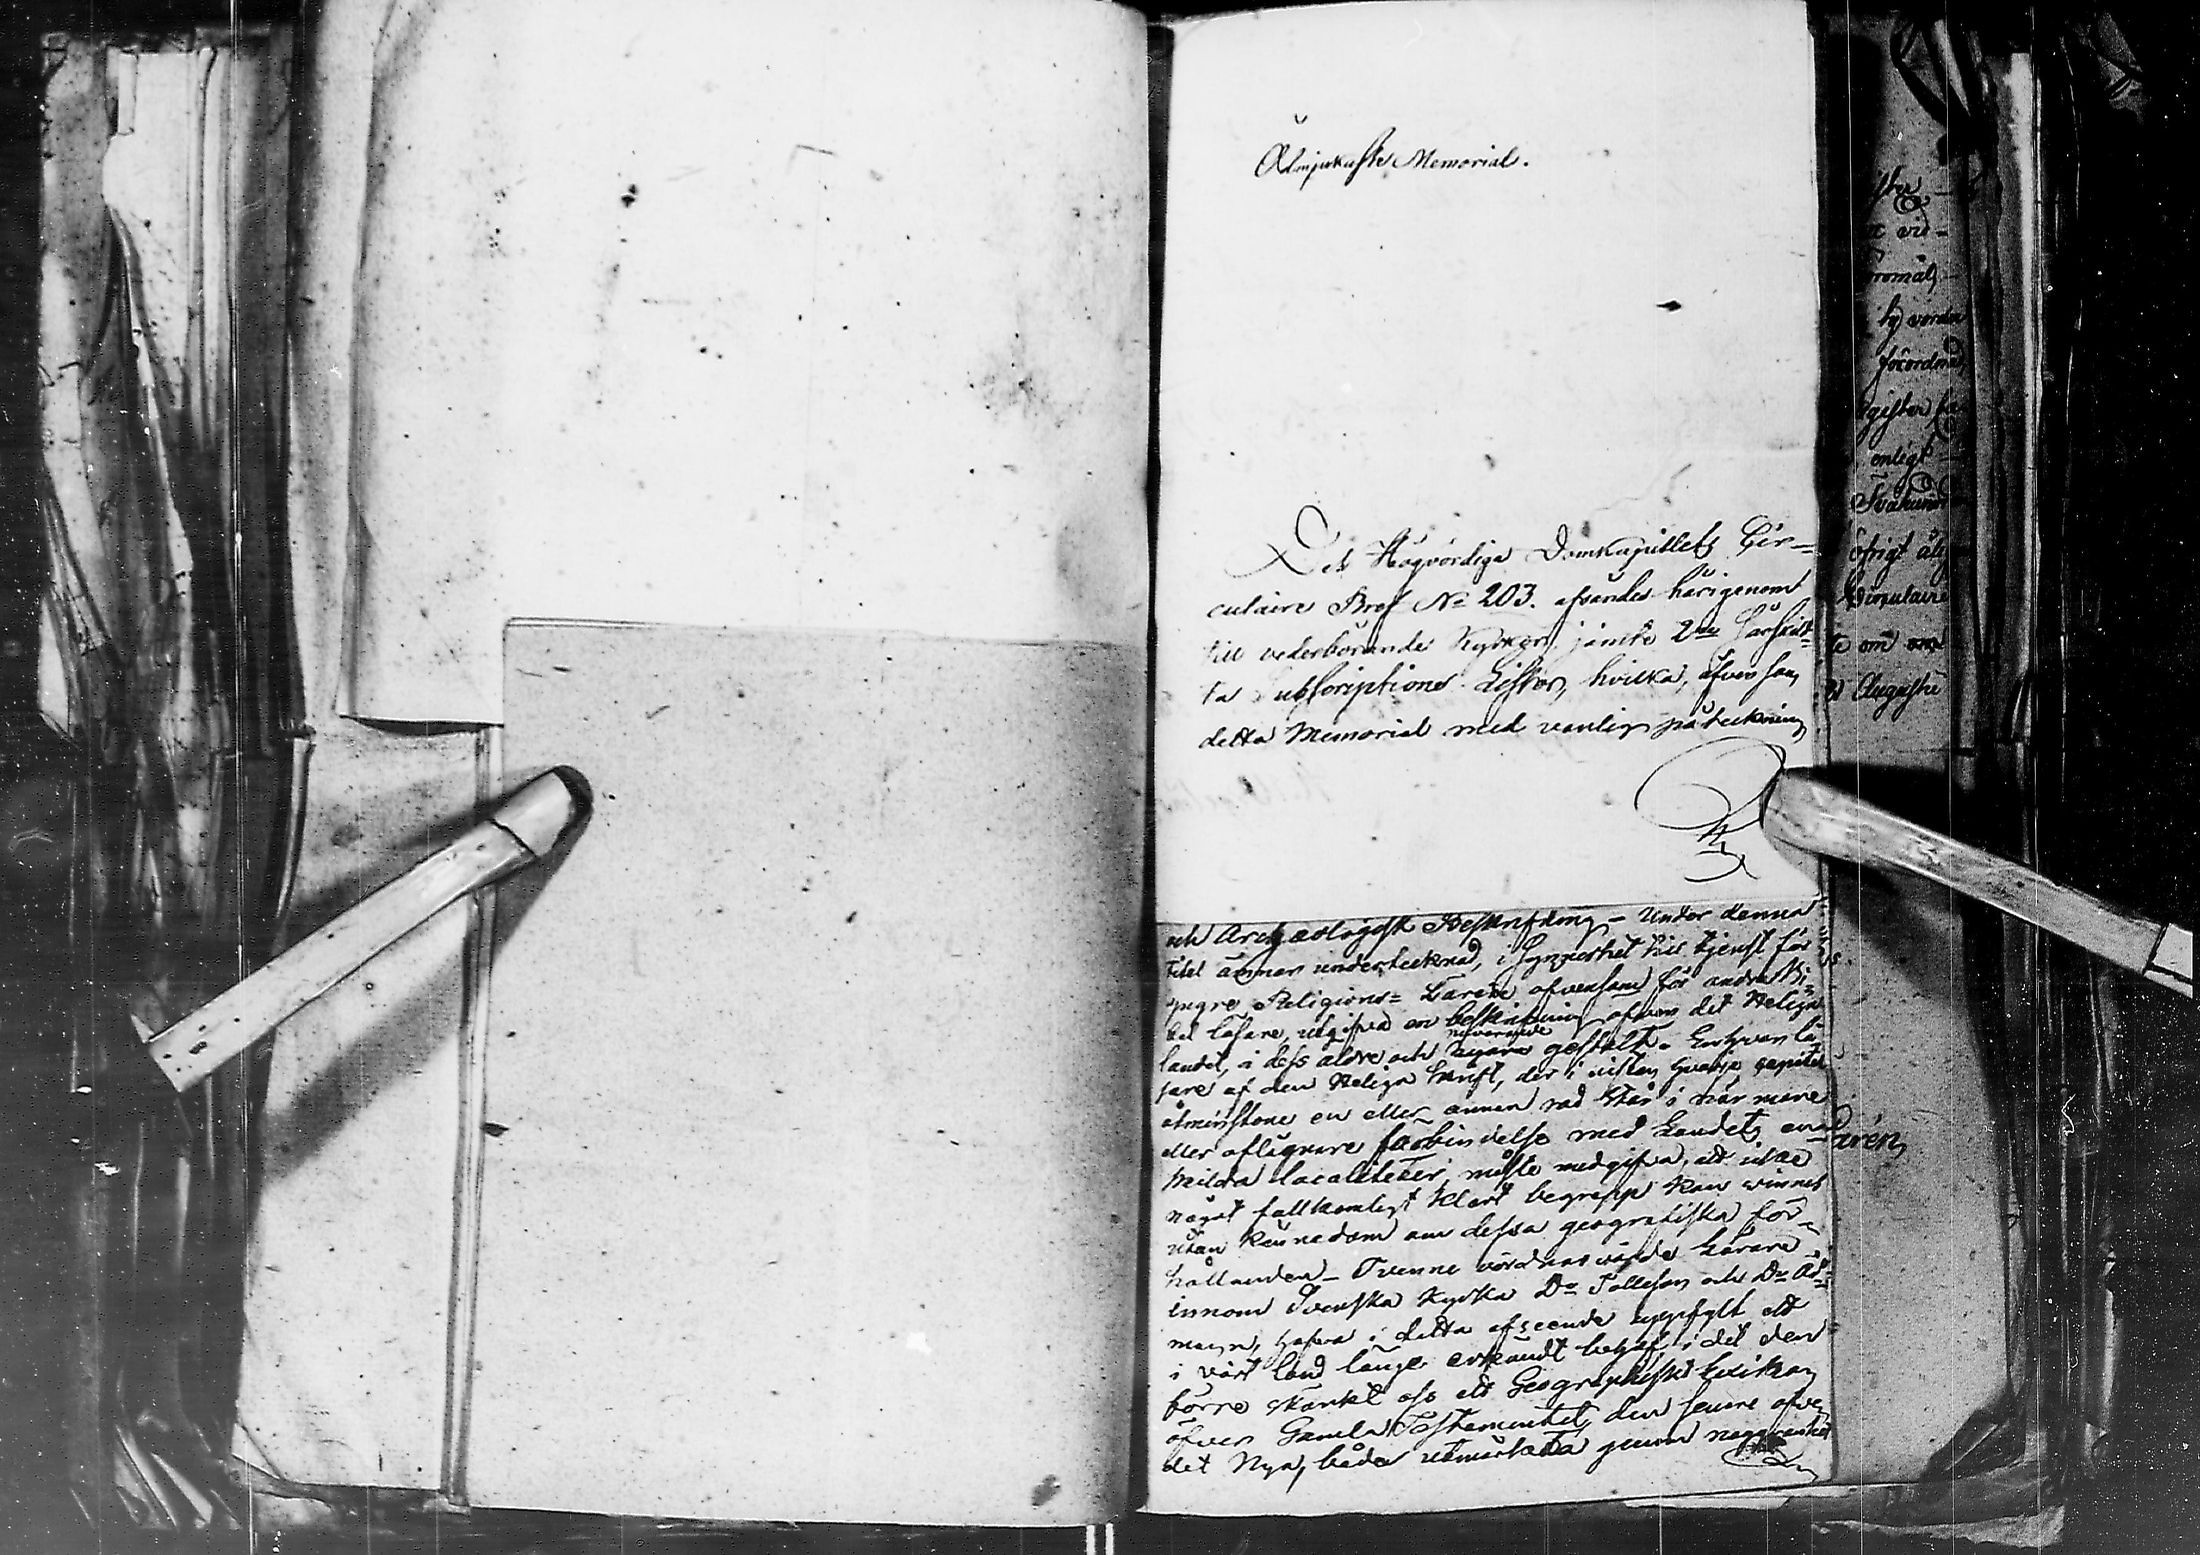 Ödmjukaste Memorial.
Det Högvördiga Domkapitlets Cir-
culaire Bref No 203. afsändes härigenom
till vederbörande Kyrkor, jämte 2ne särskil-
ta Subscriptions Listor, hvilka, äfvensom
detta Memorial med vanlig påteckning
och Archæologisk Beskrifning – Under denna
titel ämnar undertecknad, i synnerhet till tjenst för
yngre Religions= Lärare äfvensom för andra Bi=
bel läsare, utgifva en beskrifning öfver det Heliga
landet, i dess äldre och nyare nuvarande gestalt. En hvar lä-
sare af den Heliga Skrift, der i nästan hvarje capitel
åtminstone en eller annan rad står i närmare
eller aflägnare förbindelse med Landets en-
skilda localiteter, måste medgifva, att icke
något fullkomligt klart begrepp kan vinnas
utan kännedom om dessa geografiska för-
hållanden – Tvenne vördnadsvärde Lärare
innom Svenska Kyrka Dr Tollesson och Dr Öd-
mann, hafva i detta afseende uppfylt ett
i vårt land länge erkändt behof i det den
förre skänkt oss ett Geographiskt Lexikon
öfver Gamla Testamentet, den senare öfver
det Nya, båda utmärkta genom noggranhet
vid-
vorden
förordnad
enligt
öfrigt
Circulaire
om
Augusti